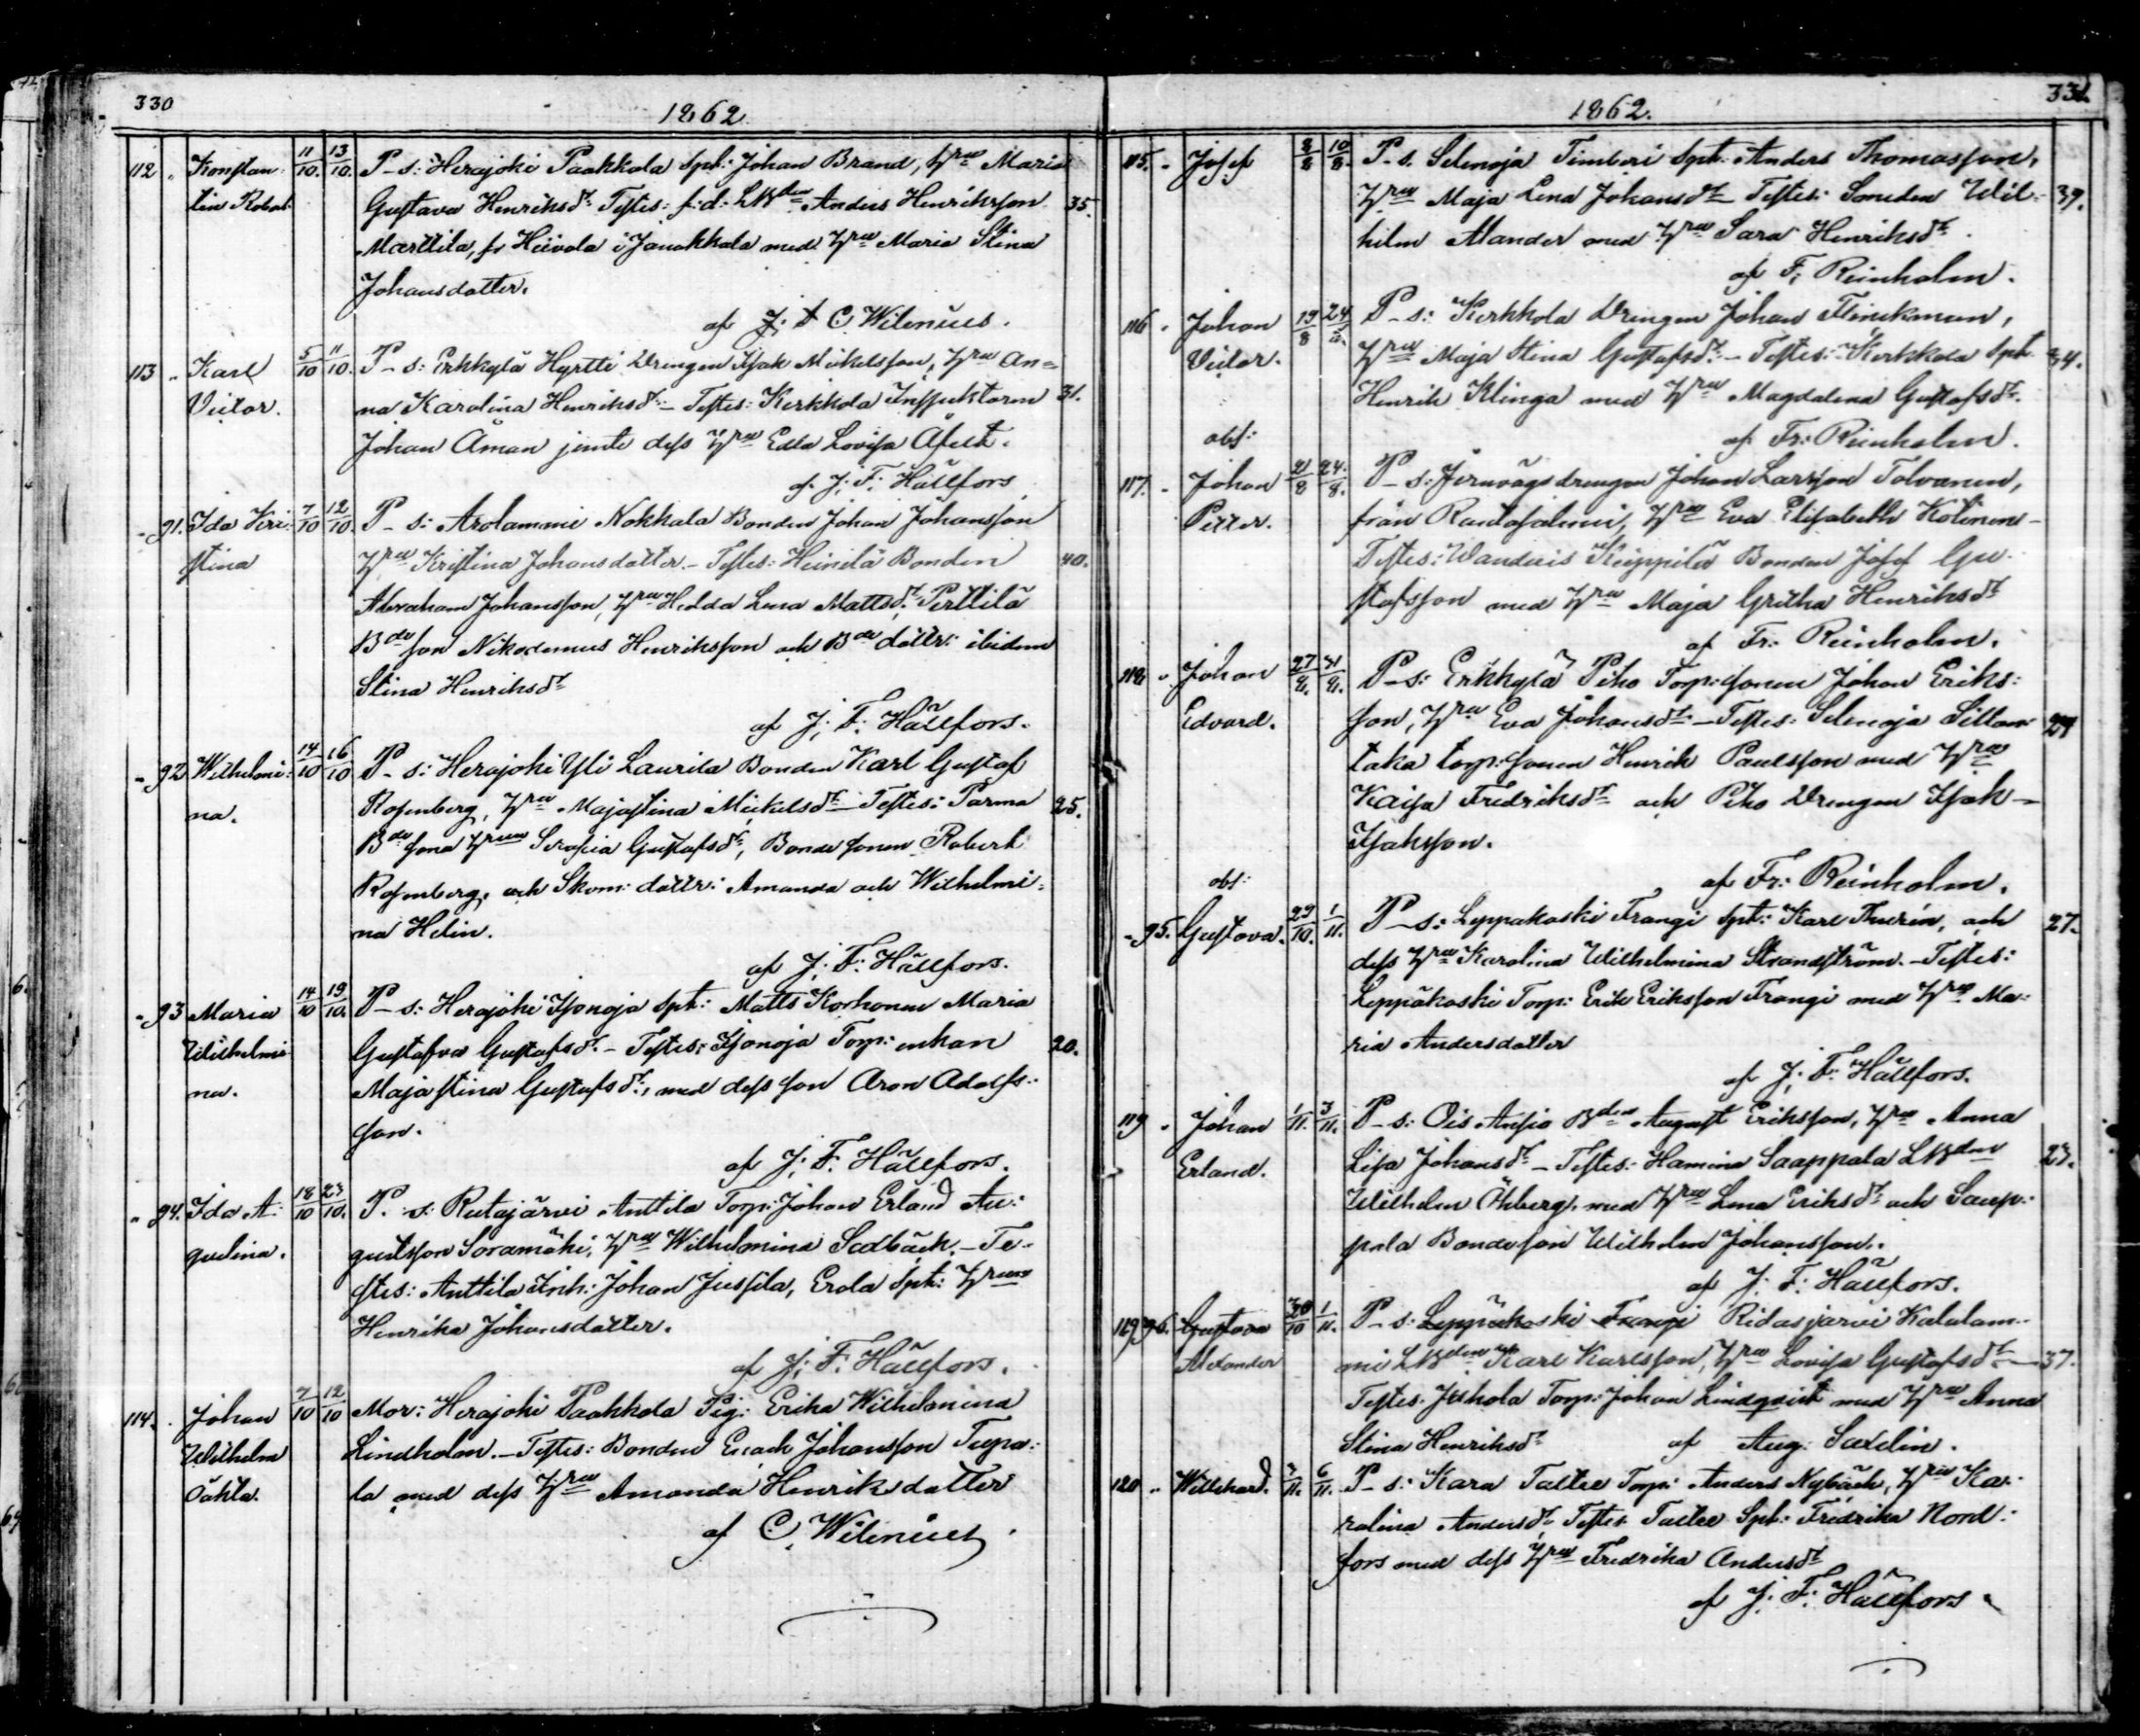 330
1862.
112. Konstan: 11/10. 13/10. P-s: Herajoki Paakkola Spt: Johan Brand, hru Maria
tin Robert Gustava Henriksdr Testes: f.d. LBden Anders Henriksson 35.
Marttila, fr Hiivola i Janakkala med hru Maria Stina
Johansdotter.
af J: A C. Wilenius.
113 " Karl 5/10 11/10. P-s: Erkkylä Hyrtti Drengen Isak Mikelsson, hru An=
Victor. na Karolina Henriksdr - Testes: Kerkkola Inspektoren 31.
Johan Åman jemte dess hru Edla Lovisa Åfelt.
af J: F: Hällfors
"91. Ida Kri: 7/10 12/10. P-s: Arolammi Nokkala Bonden Johan Johansson
stina hru Kristina Johansdotter. - Testes: Heinilä Bonden 40.
Abraham Johansson, hru Hedda Lena Mattsdr, Perttilä
Bde son Nikodemus Henriksson och Bde dottr: ibidem
Stina Henriksdr
af J: F: Hällfors.
"92 Wilhelmi: 14/10 16/10 P-s: Herajoki Yli Laurila Bonden Karl Gustaf
na. Rosenberg, hru Majastina Mickelsdr Testes: Parma 25.
Bde sons hrun Serafia Gustafsdr, Bonde sonen Robert
Rosenberg, och Skom: dottr: Amanda och Wilhelmi=
na Helin.
af J: F: Hällfors.
"93 Maria 14/10 19/10. P-s: Herajoki Isonoja Spt: Matts Korhonen Maria
Wilhelmi Gustafva Gustafsdr. - Testes: Isonoja Torp: enkan 20.
na. Maja stina Gustafsdr, med dess son Aron Adolfs:
son.
af J: F: Hällfors.
"94. Ida A: 18/10 23/10. P. s: Rutajärvi Anttila Torp: Johan Erland Au:
qvelina. gustsson Soramäki, hru Wilhelmina Sedbäck. - Te-
stes: Anttila Inh: Johan Jussila, Erola Spt: hrun
Henrika Johansdotter.
af J: F: Hällfors.
114. . Johan 7/10 12/10 Mor: Herajoki Paakkola Pig: Erika Wilhelmina
Wilhelm Lindholm. - Testes: Bonden Enach Johansson Tupa:
Oäkta. la med dess hru Amanda Henriksdotter
af C. Wilenius
331.
1862.
115. " Josef 8/8 10/8. P-s. Selenoja Timberi Spt: Anders Thomasson,
hru Maja Lena Johansdr Testes: Smeden Wil: 39.
helm Mander med hru Sara Henriksdr.
af F: Reinholm.
116 " Johan 19/8 24/8. P-s: Kerkkola Drengen Johan Flinkman,
Victor. hru Maja Stina Gustafsdr. - Testes: Kerkkola Spt. 34.
Henrik Klinga med hru Magdalena Gustafsdr.
obs: af Fr: Reinholm.
117. " Johan 21/8 24/8. P-s: Jernvägsdrengen Johan Larsson Tolvanen,
Petter. från Rautasalmi, hru Eva Elisabeth Kotinen -
Testes: Wanduis Keippilä Bonden Josef Gu-
stafsson med hru Maja Gretha Henriksdr
af Fr: Reinholm.
118 " Johan 27/8. 31/8. P-s: Erkkylä Piko Torp: sonen Johan Eriks:
Edvard. son, hru Eva Johansdr - Testes: Selenoja Sillan 29
taka torp: sonen Henrik Paulsson med hru
Kaisa Fredriksdr och Piko Drengen Isak
Isaksson.
obs: af Fr: Reinholm.
"95. Gustava. 29/10. 1/11. P-s: Leppäkoski Frangi Spt: Karl Thurin, och 27.
dess hru Karolina Wilhelmina Strandström. - Testes:
Leppäkoski Torp: Erik Eriksson Frangi med hru Ma:
ria Andersdotter
af J: F: Hällfors.
119 " Johan 1/11. 3/11. P-s: Ois Ansio Bden August Eriksson, hru Anna
Erland. Lisa Johansdr - Testes: Hamina Saappala LBden 23.
Wilhelm Öhberg, med hru Lena Eriksdr och Saap:
pala Bondeson Wilhelm Johansson.
af J: F: Hällfors.
119 96. Gustava 30/10 1/11. P-s: Leppäkoski Frangi Ridasjärvi Kalalam-
Alexander mi LBden Karl Karlsson, hru Lovisa Gustafsdr - 37.
Testes: Jukola Torp: Johan Lindqvist med hru Anna
Stina Henriksdr af Aug: Saxelin.
120 " Willehard. 2/11. 6/11. P-s: Kara Taltee Torp: Anders Nybäck, hru Ka:
rolina Andersdr, Testes Taltee Spt: Fredrika Nord:
fors med dess hru Fredrika Andersdr
af J: F: Hällfors